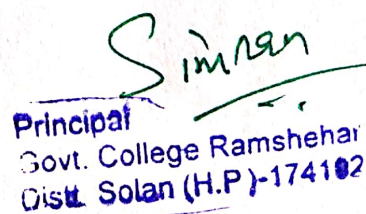 Simran
Principal
Govt. College Ramshehar
Distt. Solan (H.P)-174102